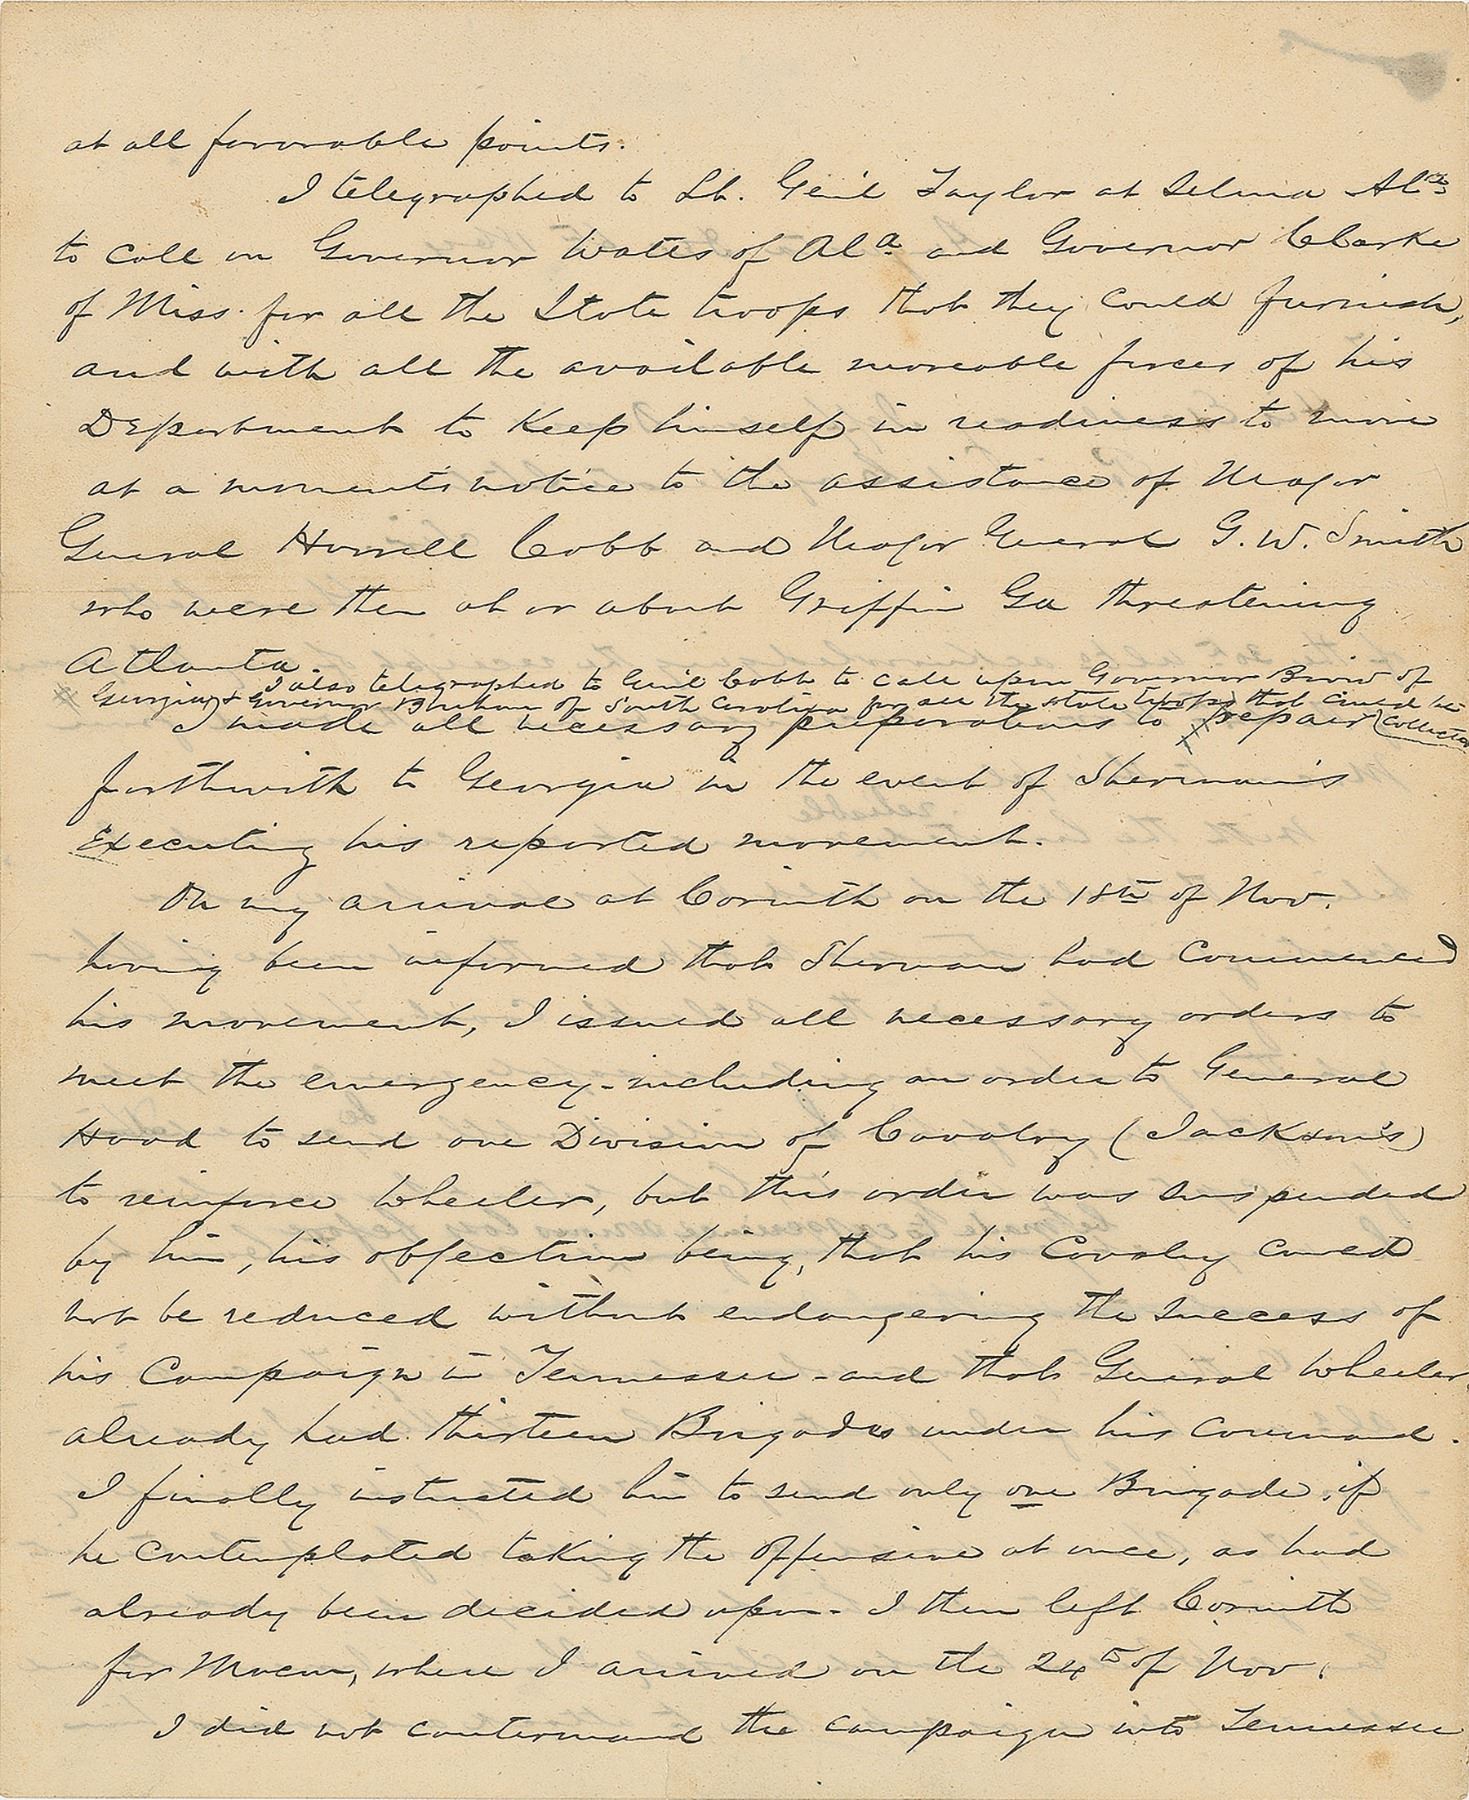 at all favorable points.
I telegraphed to Lt. Gen'l Taylor at Selma Ala
to call on Governor Watts of Ala. and Governor Clarke
of Miss. for all the State troops that they could furnish,
and with all the available moveable forces of his
Department to keep himself in readiness to move
at a moment's notice to the assistance of Major
General Howell Cobb and Major General G. W. Smith
who were then at or about Griffin Ga threatening
Atlanta.
I also telegraphed to Gen'l Cobb to call upon Governor Brown of
Georgia & Governor Bonham of South Carolina for all the state troops that could be
collected
I made all necessary preparations to repair
forthwith to Georgia in the event of Sherman's
Executing his reported movement.
On my arrival at Corinth on the 18th of Nov.
having been informed that Sherman had commenced
his movement, I issued all necessary orders to
meet the emergency - including an order to General
Hood to send one Division of Cavalry (Jackson's)
to reinforce Wheeler, but this order was suspended
by him, his objection being, that his Cavalry could
not be reduced without endangering the success of
his Campaign in Tennessee - and that General Wheeler
already had thirteen Brigades under his command.
I finally instructed him to send only one Brigade, if
he contemplated taking the offensive at once, as had
already been decided upon. I then left Corinth
for Macon, where I arrived on the 24th of Nov.
I did not countermand the campaign into Tennessee